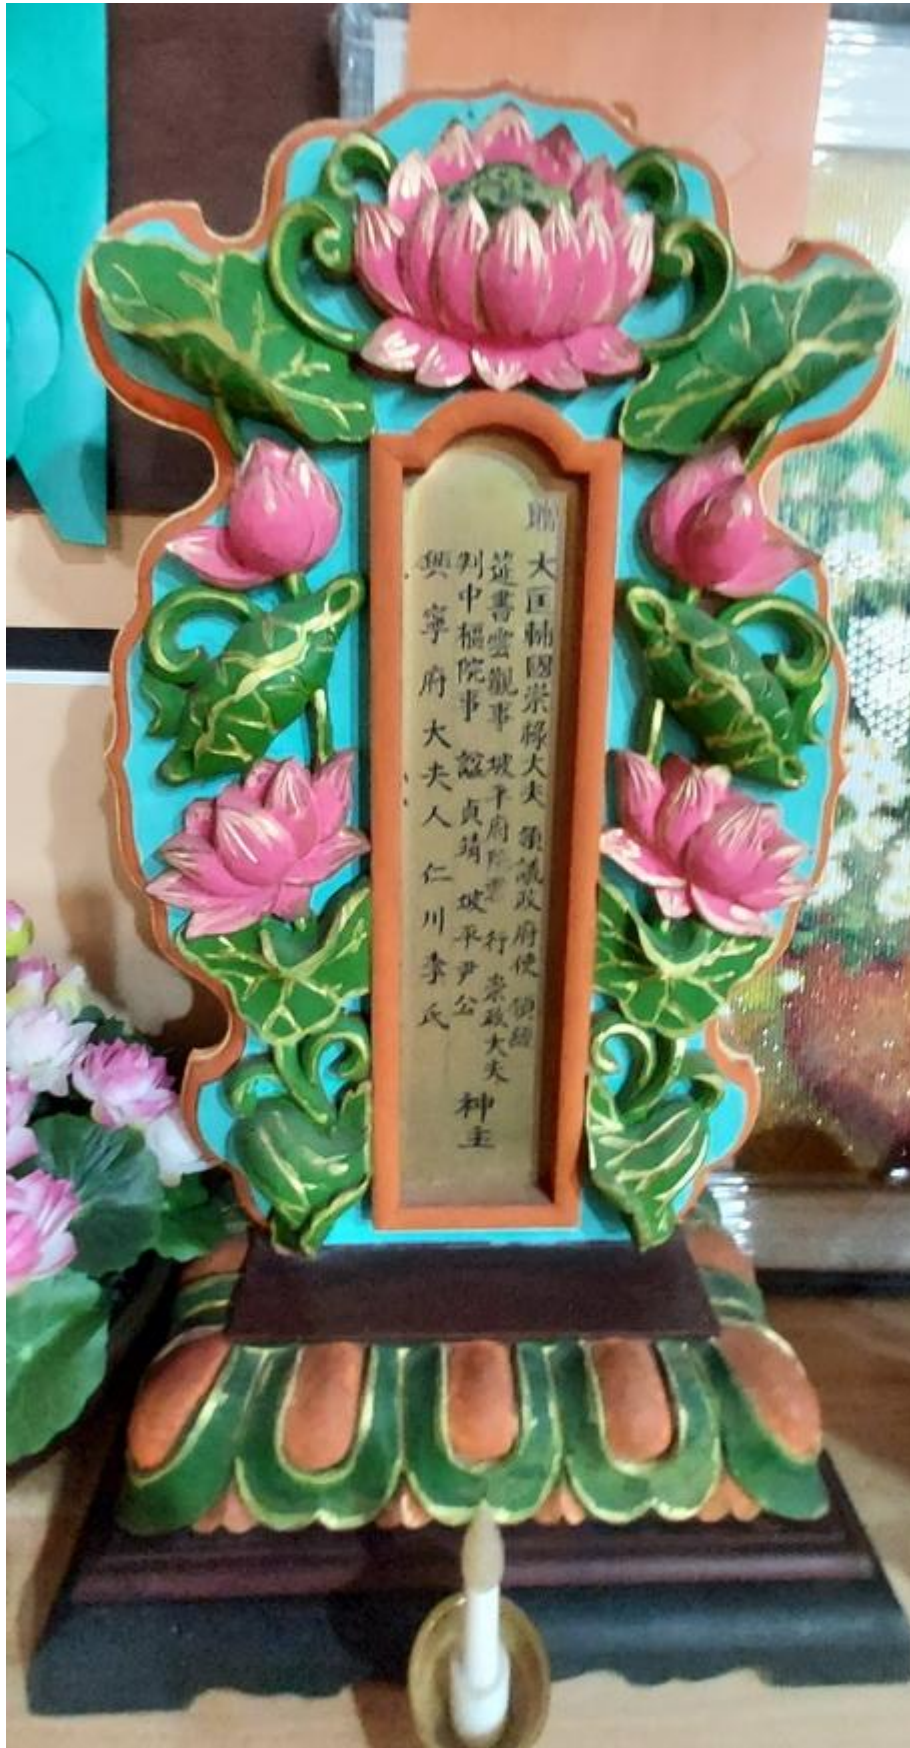 贈 大匡輔國崇祿大夫 領議政府使 領經
筵書雲觀事 坡平府院君 行 崇政大夫
判中樞院事 諡 貞靖 坡平尹公 神主
興寧府大夫人 仁川李氏